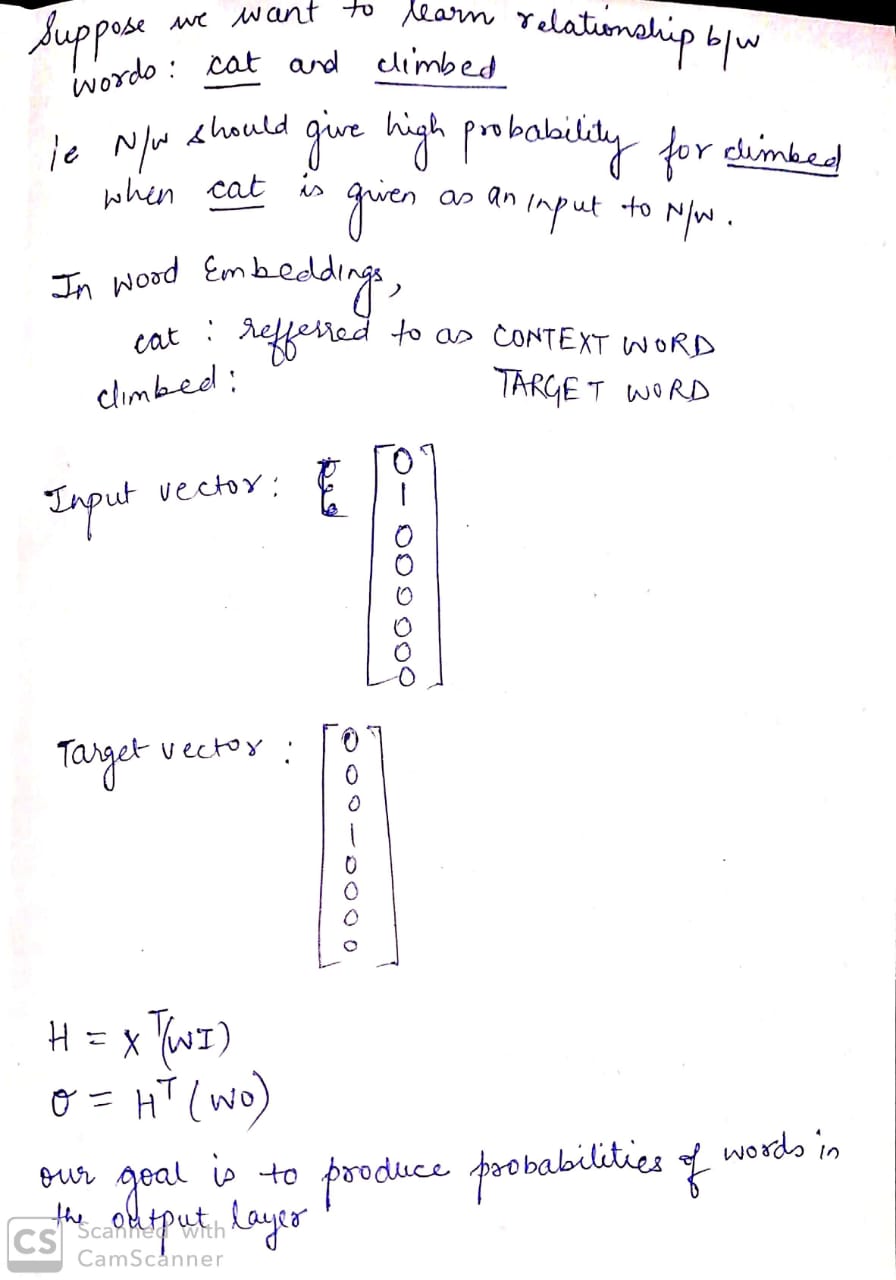 Suppose we want to learn relationship b/w
words: cat and climbed
ie N/W should give high probability for climbed
when cat is given as an input to N/W.
In Word Embeddings,
cat : reffesred to as CONTEXT WORD
climbed : TARGET WORD
Input vector:
0
1
0
0
0
0
0
0
Target vector :
0
0
0
1
0
0
0
0
H = X^T(WI)
O = H^T(WO)
our goal is to produce probabilities of words in
the output layer
CS Scanned with
CamScanner